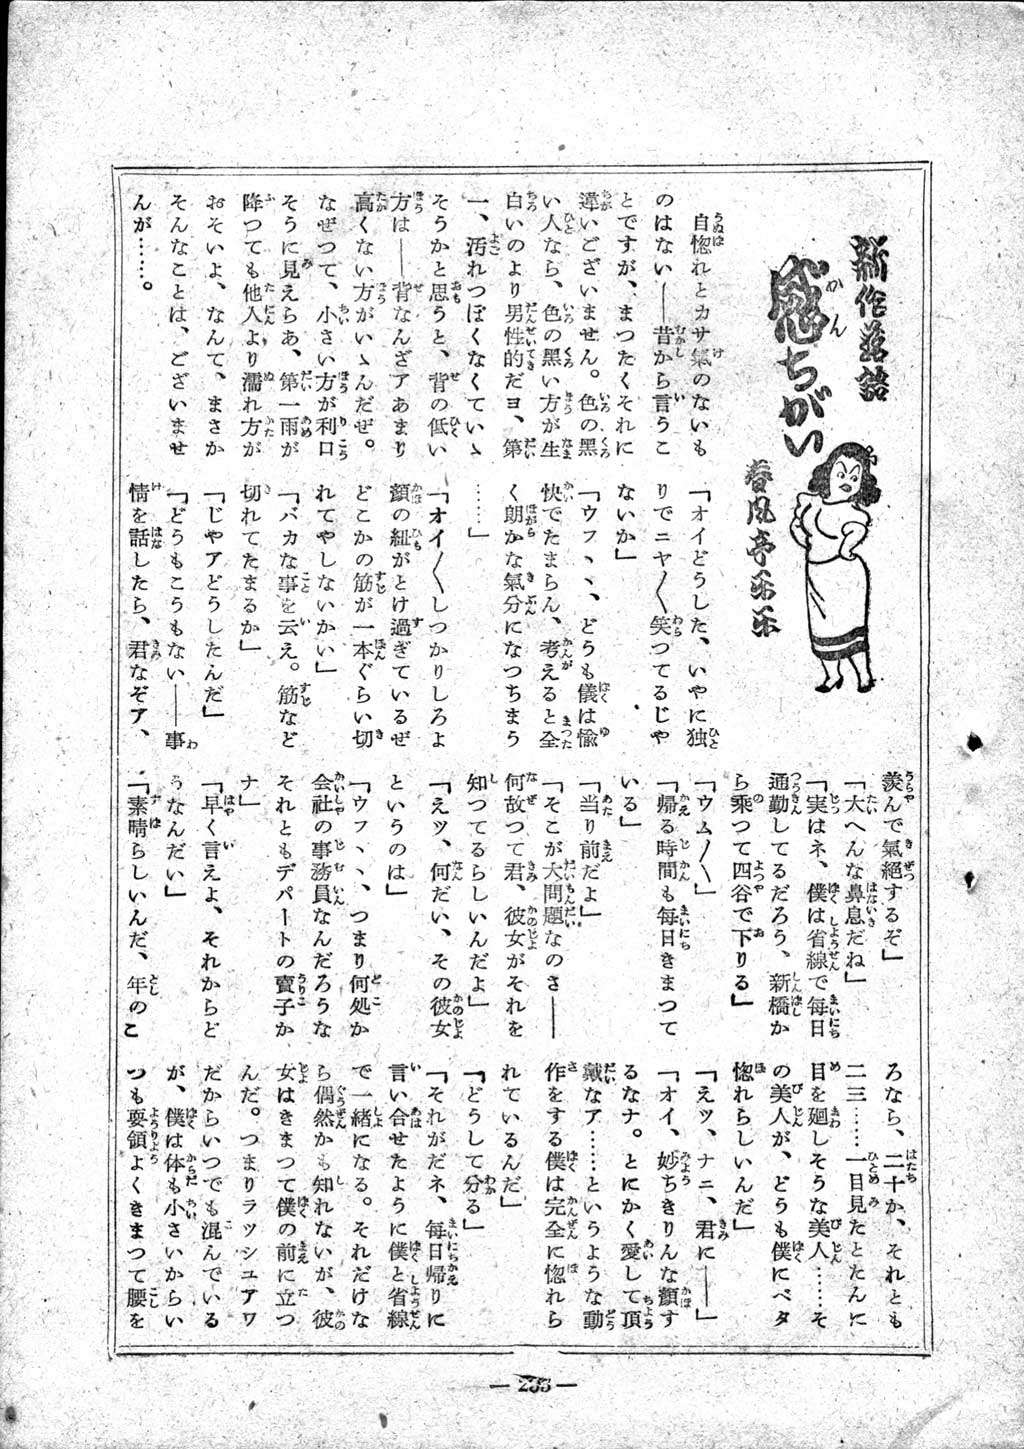 新作落語
感ちがい
春風亭乐乐
自惚れとカサ氣のないも
のはない――昔から言うこ
とですが、まつたくそれに
違いございません。色の黒
い人なら、色の黒い方が生
白いのより男性的だヨ、第
一、汚れつぽくなくていゝ
そうかと思うと、背の低い
方は――背なんざアあまり
高くない方がいゝんだぜ。
なぜつて、小さい方が利口
そうに見えらあ、第一雨が
降つても他人より濡れ方が
おそいよ、なんて、まさか
そんなことは、ございませ
んが……。
「オイどうした、いやに独
りでニヤ〳〵笑つてるじや
ないか」
「ウフヽヽ、どうも僕は愉
快でたまらん、考えると全
く朗かな氣分になつちまう
……」
「オイ〳〵しつかりしろよ
顔の紐がとけ過ぎているぜ
どこかの筋が一本ぐらい切
れてやしないかい」
「バカな事を云え。筋など
切れてたまるか」
「じやアどうしたんだ」
「どうもこうもない――事
情を話したら、君なぞア、
羨んで氣絶するぞ」
「大へんな鼻息だね」
「実はネ、僕は省線で毎日
通勤してるだろう、新橋か
ら乘つて四谷で下りる」
「ウム〳〵」
「帰る時間も毎日きまつて
いる」
「当り前だよ」
「そこが大問題なのさ――
何故つて君、彼女がそれを
知つてるらしいんだよ」
「えツ、何だい、その彼女
というのは」
「ウフヽヽ、つまり何処か
会社の事務員なんだろうな
それともデパートの賣子か
ナ」
「早く言えよ、それからど
うなんだい」
「素晴らしいんだ、年のこ
ろなら、二十か、それとも
二三……一目見たとたんに
目を廻しそうな美人……そ
の美人が、どうも僕にベタ
惚れらしいんだ」
「えツ、ナニ、君に――」
「オイ、妙ちきりんな顔す
るなナ。とにかく愛して頂
戴なア……というような動
作をする僕は完全に惚れら
れているんだ」
「どうして分る」
「それがだネ、毎日帰りに
言い合せたように僕と省線
で一緒になる。それだけな
ら偶然かも知れないが、彼
女はきまつて僕の前に立つ
んだ。つまりラッシユアワ
だからいつでも混んでいる
が、僕は体も小さいからい
つも要領よくきまつて腰を
― 233 ―